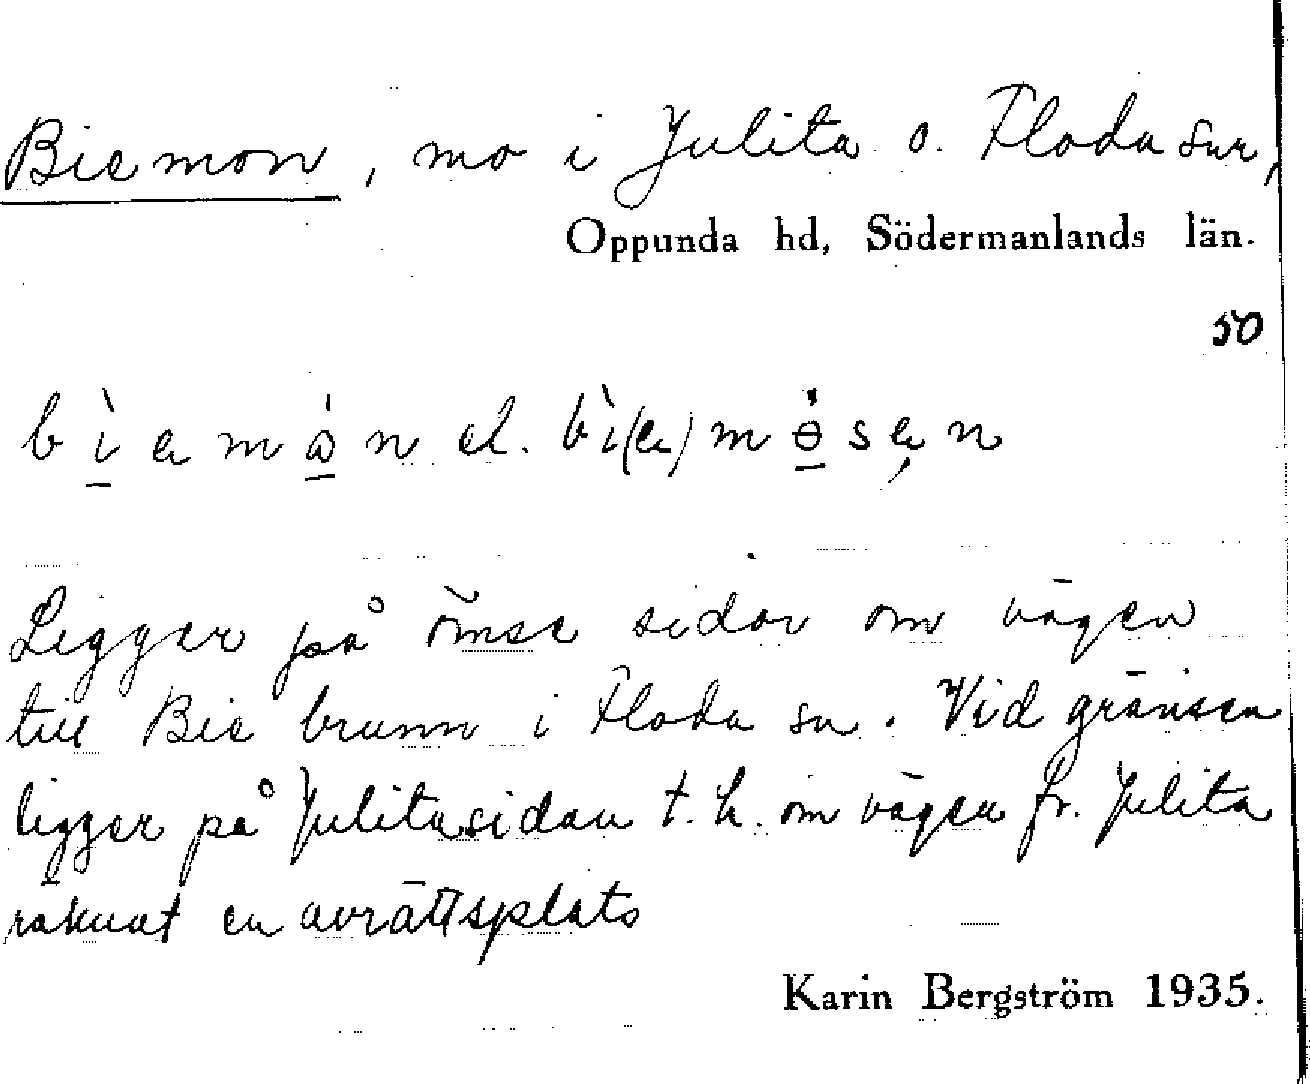 Biemon, mo i Julita o. Floda snr,
Oppunda hd, Södermanlands län.
50
bì̱emȯ̱n el. bì(e)mȯ̱sen
Ligger på ömse sidor om vägen
till Bie brunn i Floda sn. Vid gränsen
ligger på Julitasidan t.h. om vägen fr. Julita
räknat en avrättsplats
Karin Bergström 1935.